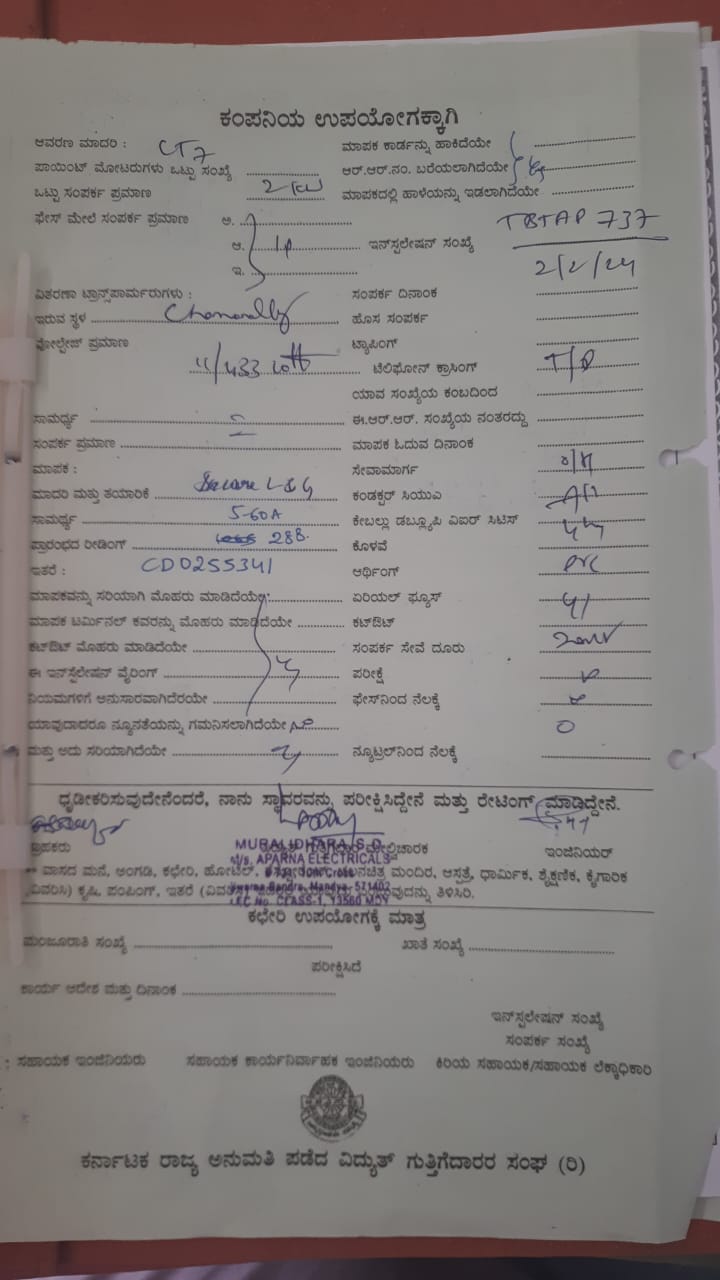 ಕಂಪನಿಯ ಉಪಯೋಗಕ್ಕಾಗಿ
ಆವರಣ ಮಾದರಿ : CT7 ಮಾಪಕ ಕಾರ್ಡನ್ನು ಹಾಕಿದೆಯೇ
ಪಾಯಿಂಟ್ ಮೋಟರುಗಳು ಒಟ್ಟು ಸಂಖ್ಯೆ ಆರ್.ಆರ್.ನಂ. ಬರೆಯಲಾಗಿದೆಯೇ
ಒಟ್ಟು ಸಂಪರ್ಕ ಪ್ರಮಾಣ 2 kw ಮಾಪಕದಲ್ಲಿ ಹಾಳೆಯನ್ನು ಇಡಲಾಗಿದೆಯೇ
ಫೇಸ್ ಮೇಲೆ ಸಂಪರ್ಕ ಪ್ರಮಾಣ ಅ.
ಆ. ಇನ್‌ಸ್ಪಲೇಷನ್ ಸಂಖ್ಯೆ TBTAP 737
ಇ. 2/2/24
ವಿತರಣಾ ಟ್ರಾನ್ಸ್‌ಪಾರ್ಮರುಗಳು : ಸಂಪರ್ಕ ದಿನಾಂಕ
ಇರುವ ಸ್ಥಳ ಹೊಸ ಸಂಪರ್ಕ
ವೋಲ್ಟೇಜ್ ಪ್ರಮಾಣ ಟ್ಯಾಪಿಂಗ್
11/433 ಟೆಲಿಫೋನ್ ಕ್ರಾಸಿಂಗ್
ಯಾವ ಸಂಖ್ಯೆಯ ಕಂಬದಿಂದ
ಸಾಮರ್ಥ್ಯ ಈ.ಆರ್.ಆರ್. ಸಂಖ್ಯೆಯ ನಂತರದ್ದು
ಸಂಪರ್ಕ ಪ್ರಮಾಣ ಮಾಪಕ ಓದುವ ದಿನಾಂಕ
ಮಾಪಕ : ಸೇವಾಮಾರ್ಗ
ಮಾದರಿ ಮತ್ತು ತಯಾರಿಕೆ L & G ಕಂಡಕ್ಟರ್ ಸಿಯುಎ
ಸಾಮರ್ಥ್ಯ 5-60A ಕೇಬಲ್ಲು ಡಬ್ಲ್ಯೂಪಿ ವಿಐರ್ ಸಿಟಿಸ್
ಪ್ರಾರಂಭದ ರೀಡಿಂಗ್ 288. ಕೊಳವೆ
ಇತರೆ : CD0255341 ಆರ್ಥಿಂಗ್
ಮಾಪಕವನ್ನು ಸರಿಯಾಗಿ ಮೊಹರು ಮಾಡಿದೆಯೇ ಏರಿಯಲ್ ಫ್ಯೂಸ್
ಮಾಪಕ ಟರ್ಮಿನಲ್ ಕವರನ್ನು ಮೊಹರು ಮಾಡಿದೆಯೇ ಕಟ್‌ಔಟ್
ಕಟ್‌ಔಟ್ ಮೊಹರು ಮಾಡಿದೆಯೇ ಸಂಪರ್ಕ ಸೇವೆ ದೂರು
ಈ ಇನ್‌ಸ್ಪಲೇಷನ್ ವೈರಿಂಗ್ ಪರೀಕ್ಷೆ
ನಿಯಮಗಳಿಗೆ ಅನುಸಾರವಾಗಿದೆರಯೇ ಫೇಸ್‌ನಿಂದ ನೆಲಕ್ಕೆ
ಯಾವುದಾದರೂ ನ್ಯೂನತೆಯನ್ನು ಗಮನಿಸಲಾಗಿದೆಯೇ
ಮತ್ತು ಅದು ಸರಿಯಾಗಿದೆಯೇ ನ್ಯೂಟ್ರಲ್‌ನಿಂದ ನೆಲಕ್ಕೆ
ಧೃಡೀಕರಿಸುವುದೇನೆಂದರೆ, ನಾನು ಸ್ಥಾವರವನ್ನು ಪರೀಕ್ಷಿಸಿದ್ದೇನೆ ಮತ್ತು ರೇಟಿಂಗ್ ಮಾಡಿದ್ದೇನೆ.
MURALIDHARA S.D.
M/s. APARNA ELECTRICALS
ಇಂಜಿನಿಯರ್
** ವಾಸದ ಮನೆ, ಅಂಗಡಿ, ಕಛೇರಿ, ಹೋಟೆಲ್, ಮಂದಿರ, ಆಸ್ಪತ್ರೆ, ಧಾರ್ಮಿಕ, ಶೈಕ್ಷಣಿಕ, ಕೈಗಾರಿಕ
(ವಿವರಿಸಿ) ಕೃಷಿ, ಪಂಪಿಂಗ್, ಇತರೆ ತಿಳಿಸಿರಿ.
ಕಛೇರಿ ಉಪಯೋಗಕ್ಕೆ ಮಾತ್ರ
ಮಂಜೂರಾತಿ ಸಂಖ್ಯೆ ಖಾತೆ ಸಂಖ್ಯೆ
ಪರೀಕ್ಷಿಸಿದೆ
ಕಾರ್ಯ ಆದೇಶ ಮತ್ತು ದಿನಾಂಕ
ಇನ್‌ಸ್ಪಲೇಷನ್ ಸಂಖ್ಯೆ
ಸಂಪರ್ಕ ಸಂಖ್ಯೆ
: ಸಹಾಯಕ ಇಂಜಿನಿಯರು ಸಹಾಯಕ ಕಾರ್ಯನಿರ್ವಾಹಕ ಇಂಜಿನಿಯರು ಕಿರಿಯ ಸಹಾಯಕ/ಸಹಾಯಕ ಲೆಕ್ಕಾಧಿಕಾರಿ
ಕರ್ನಾಟಕ ರಾಜ್ಯ ಅನುಮತಿ ಪಡೆದ ವಿದ್ಯುತ್ ಗುತ್ತಿಗೆದಾರರ ಸಂಘ (ರಿ)